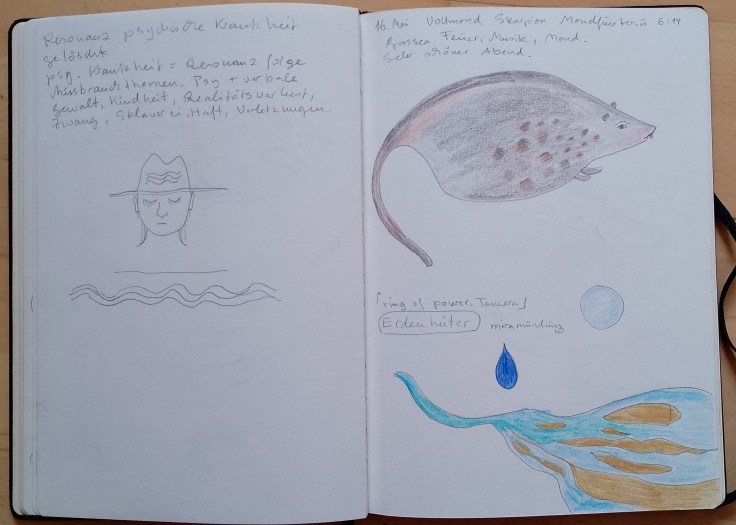 Resonanz psychische Krankheit
gelöscht
psy. Krankheit = Resonanz folge
Missbrauchsthemen. Psy + verbale
Gewalt, Kindheit, Realitätsverlust,
Zwang, Sklaverei, Haft, Verletzungen.
16. Mai Vollmond Skorpion Mondfinsternis 6:14
Grosses Feuer, Musik, Mond.
Sehr schöner Abend.
[ring of power, Tamera]
Erdenhüter
mira mündung